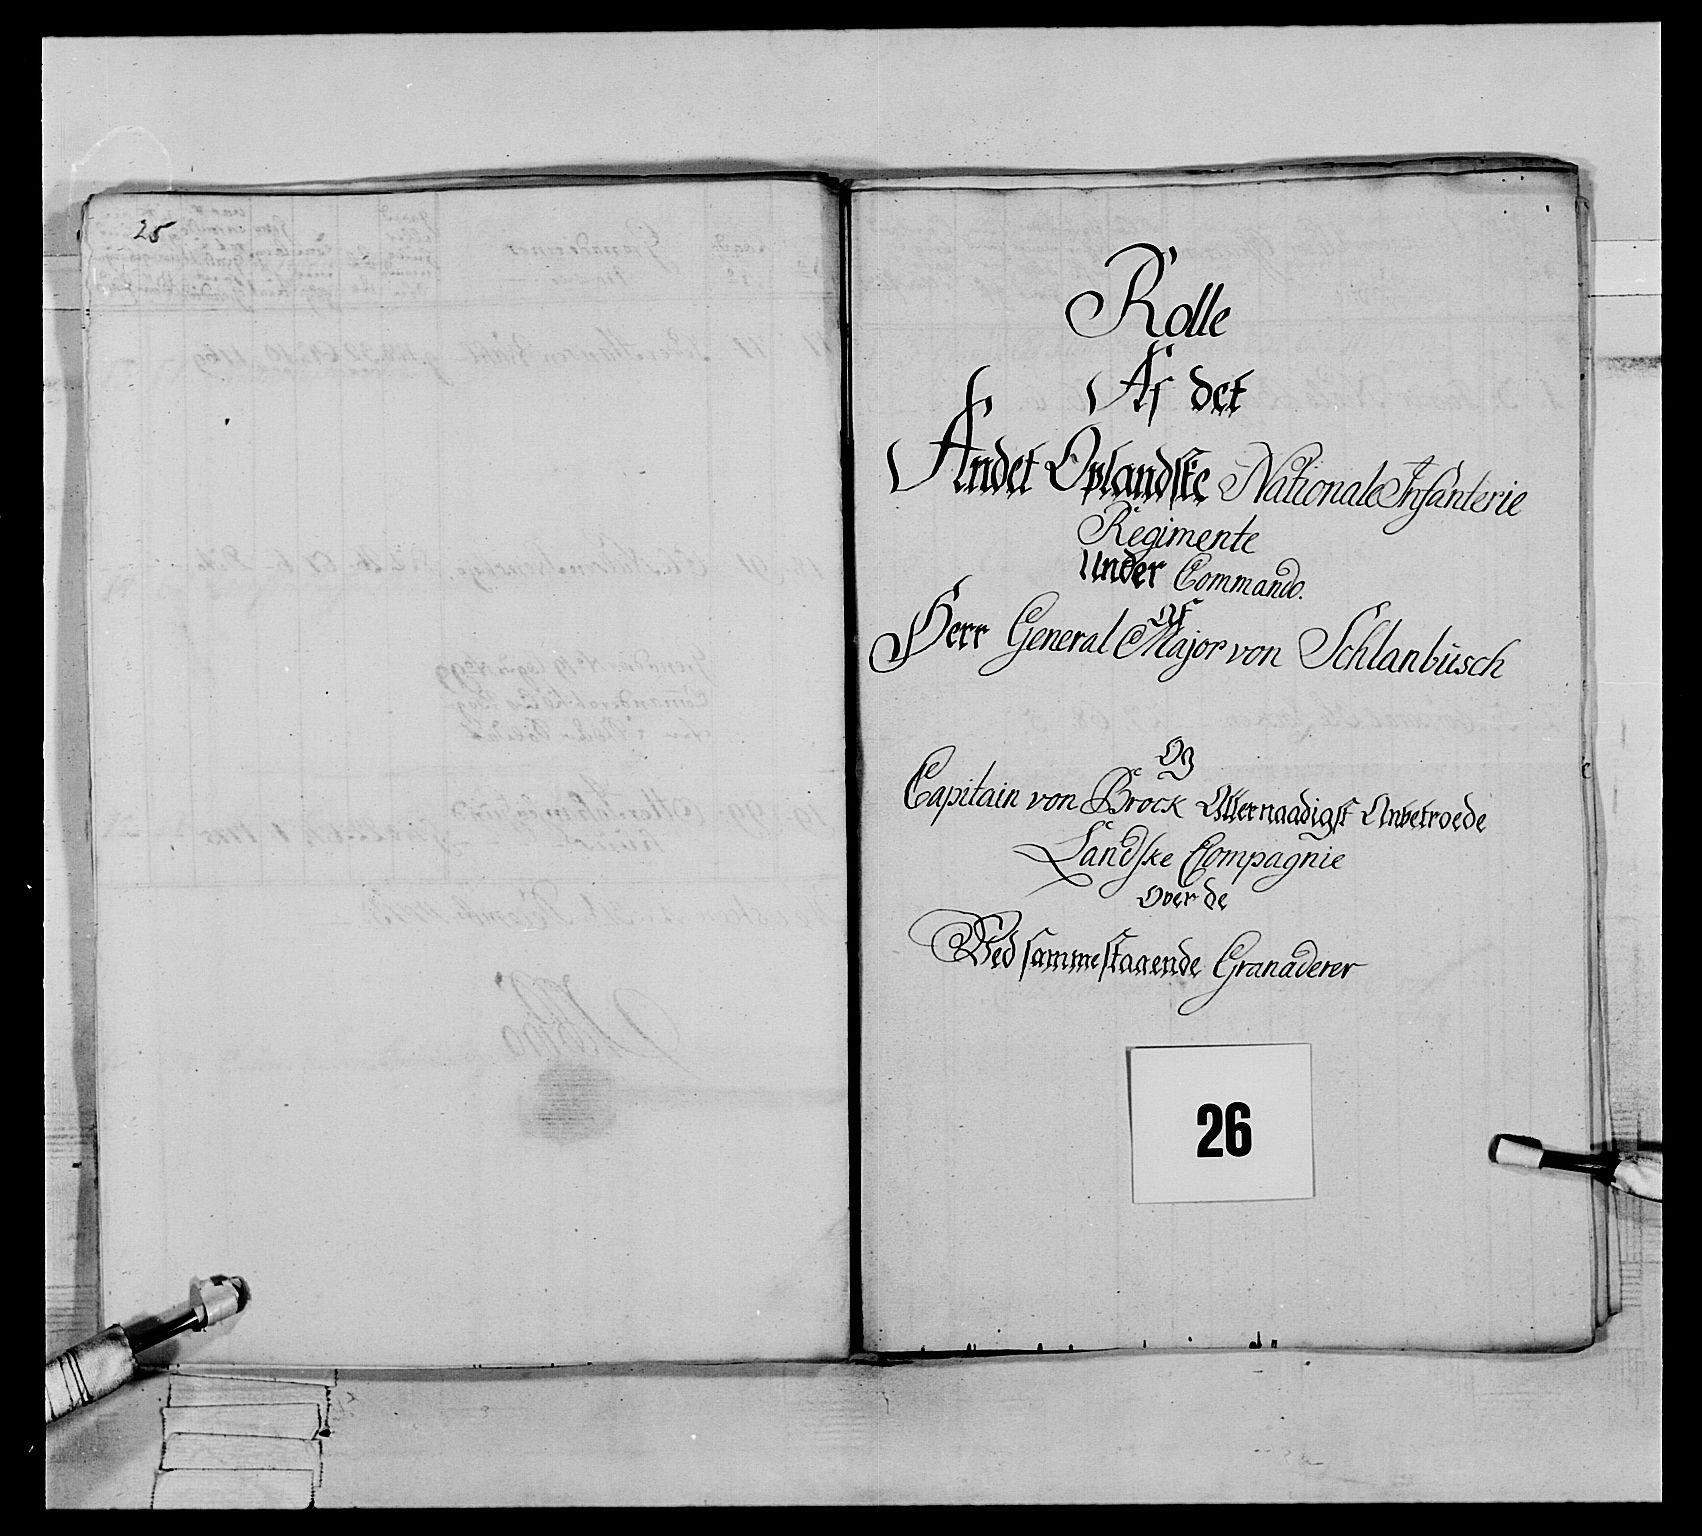 25
Rolle
Af det
Andet Oplandske Nationale Infanterie
Regimente
Under Commando
Af
Herr General Major von Schlanbüsch
Og
Capitain von Brock Allernaadigst Anbetroede
Landske Compagnie
Over de
Ved sammestaaende Granaderer
26